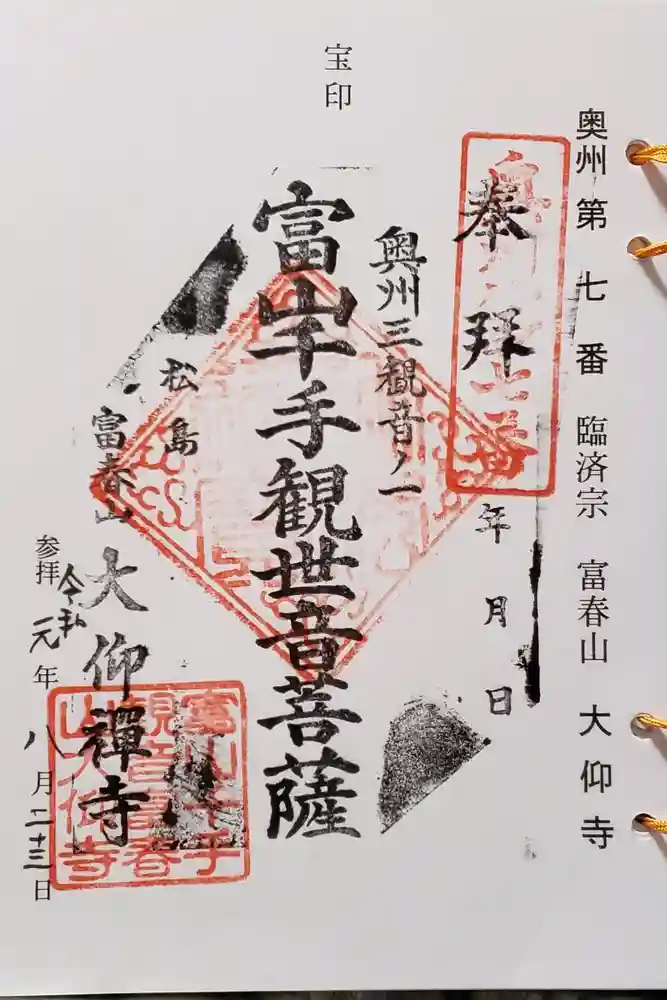 奥州第七番 臨済宗 富春山 大仰寺
宝印
奉拝
年月日
奥州三観音ノ一
富山千手観世音菩薩
松島
富春山
大仰禅寺
参拝 令和元年八月二十三日
富山千手
観音富春
山大仰寺